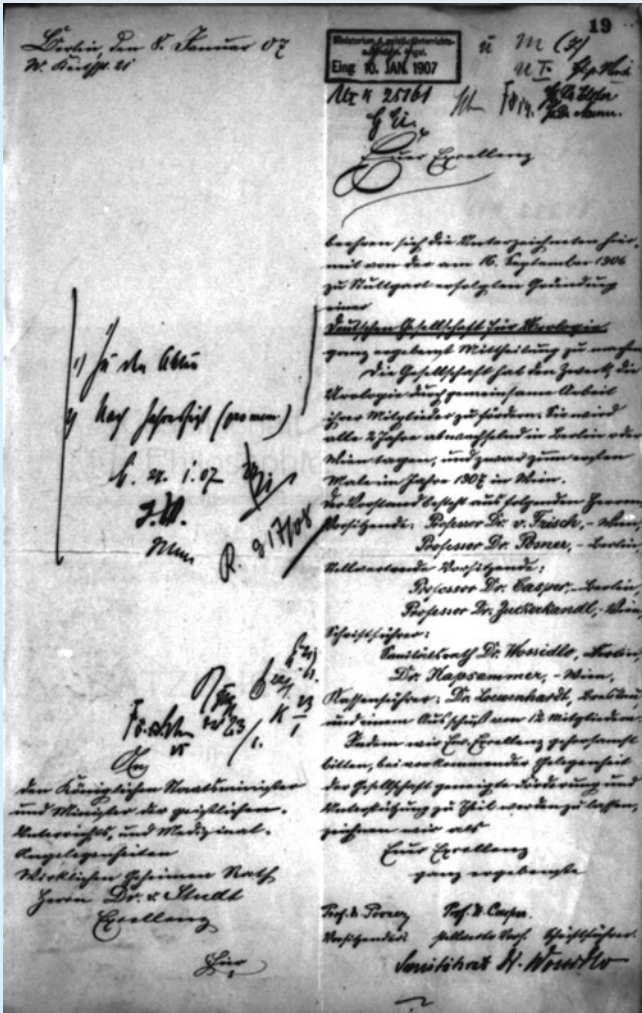 19
Berlin, den 8. Januar 07
W.
Ministerium d. geistl. Unterrichts-
Eing. 10. JAN. 1907
Euer Exzellenz
beehren sich die Unterzeichneten hier-
mit von der am 16. September 1906
zu Stuttgart erfolgten Gründung
einer
Deutschen Gesellschaft für Urologie
ganz ergebenst Mittheilung zu machen
Die Gesellschaft hat den Zweck, die
Urologie durch gemeinsame Arbeit
ihrer Mitglieder zu fördern. Sie wird
alle 2 Jahre abwechselnd in Berlin oder
Wien tagen, und zwar zum ersten
Male im Jahre 1907 in Wien.
Der Vorstand besteht aus folgenden Herren
Vorsitzende: Professor Dr. v. Frisch, - Wien,
Professor Dr. Posner, - Berlin
Stellvertretende Vorsitzende:
Professor Dr. Casper, - Berlin,
Professor Dr. Zuckerkandl, - Wien
Schriftführer:
Sanitätsrath Dr. Wossidlo, - Berlin
Dr. Kapsammer, - Wien,
Kassenführer: Dr. Loewenhardt, Breslau
und einem Ausschuß von 12 Mitgliedern
Indem wir Eur. Exzellenz gehorsamst
bitten, bei vorkommender Gelegenheit
der Gesellschaft geneigte Förderung und
Unterstützung zu Theil werden zu lassen,
zeichnen wir als
Eurer Exzellenz
ganz ergebenste
Prof. Dr. Posner Prof. Dr. Casper.
Vorsitzender stellvertr. Vors. Schriftführer.
Sanitätsrat Dr. Wossidlo
1) Zu den Akten
2) Nach Jahresfrist
B. 24. 1. 07
An
den Königlichen Staatsminister
und Minister der geistlichen-
Unterrichts, und Medizinal-
Angelegenheiten
Wirklichen Geheimen Rath
Herrn Dr. v. Studt
Exzellenz
Hier